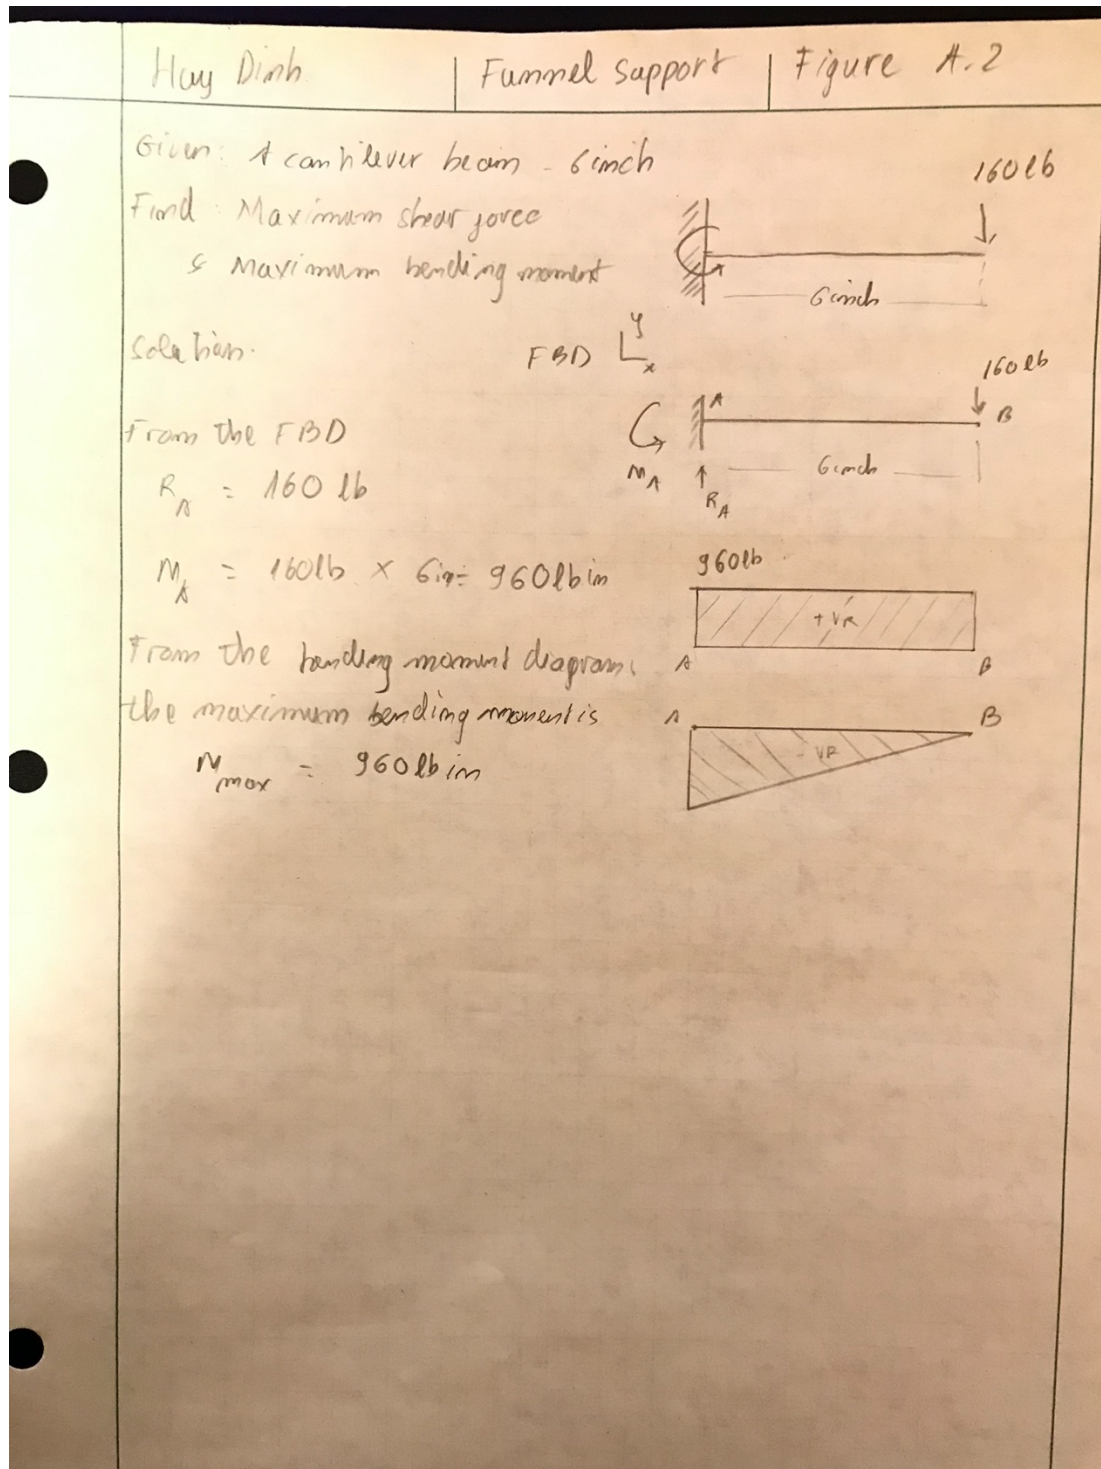 Huy Dinh | Funnel Support | Figure A.2
Given: A cantilever beam - 6 inch
Find: Maximum shear force
& Maximum bending moment
160 lb
6 inch
Solution.
FBD
y
x
160 lb
A
B
MA
RA
6 inch
From the FBD
RA = 160 lb
MA = 160lb x 6in = 960lbin
960lb
+VR
A
B
From the bending moment diagram,
the maximum bending moment is
Mmax = 960lbin
A
B
- VR